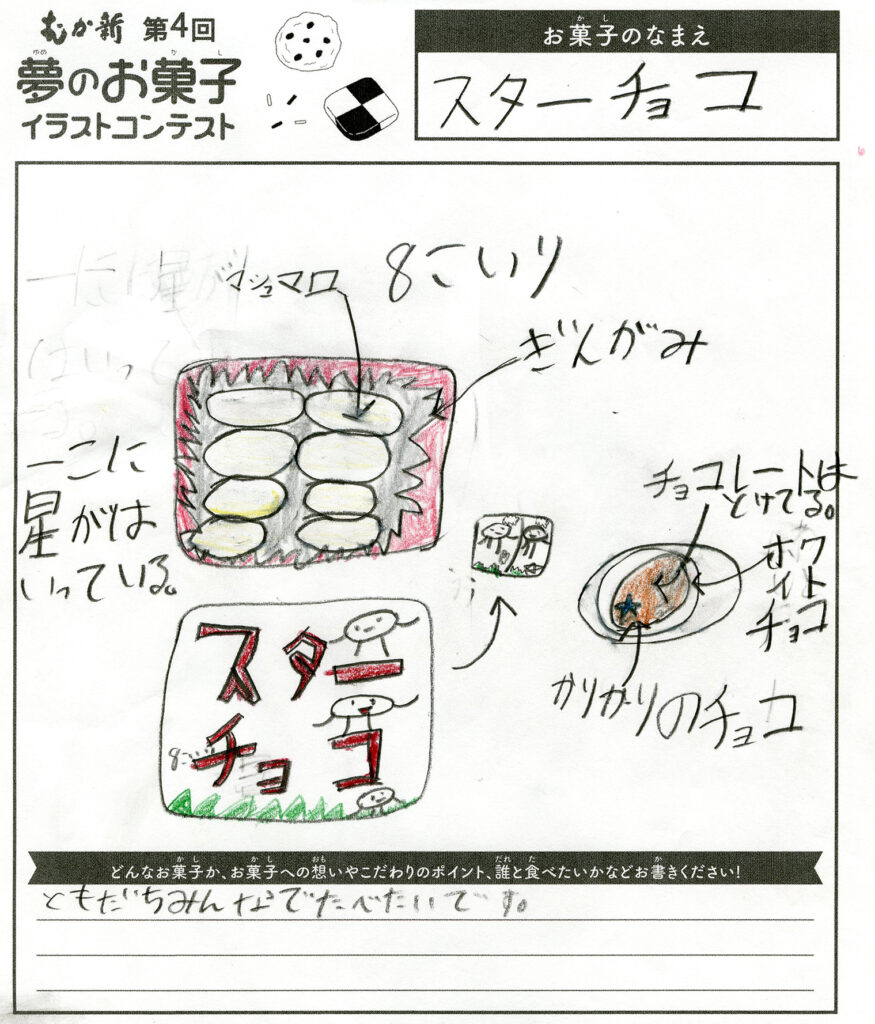 むか新 第4回
夢のお菓子
イラストコンテスト
お菓子のなまえ
スターチョコ
8こいり
マシュマロ
ぎんがみ
一こに
星がは
いっている。
チョコレートは
とけてる。
ホワ
イト
チョコ
かりかりのチョコ
スター
チョコ
8こいり
どんなお菓子か、お菓子への想いやこだわりのポイント、誰と食べたいかなどお書きください!
ともだちみんなでたべたいです。